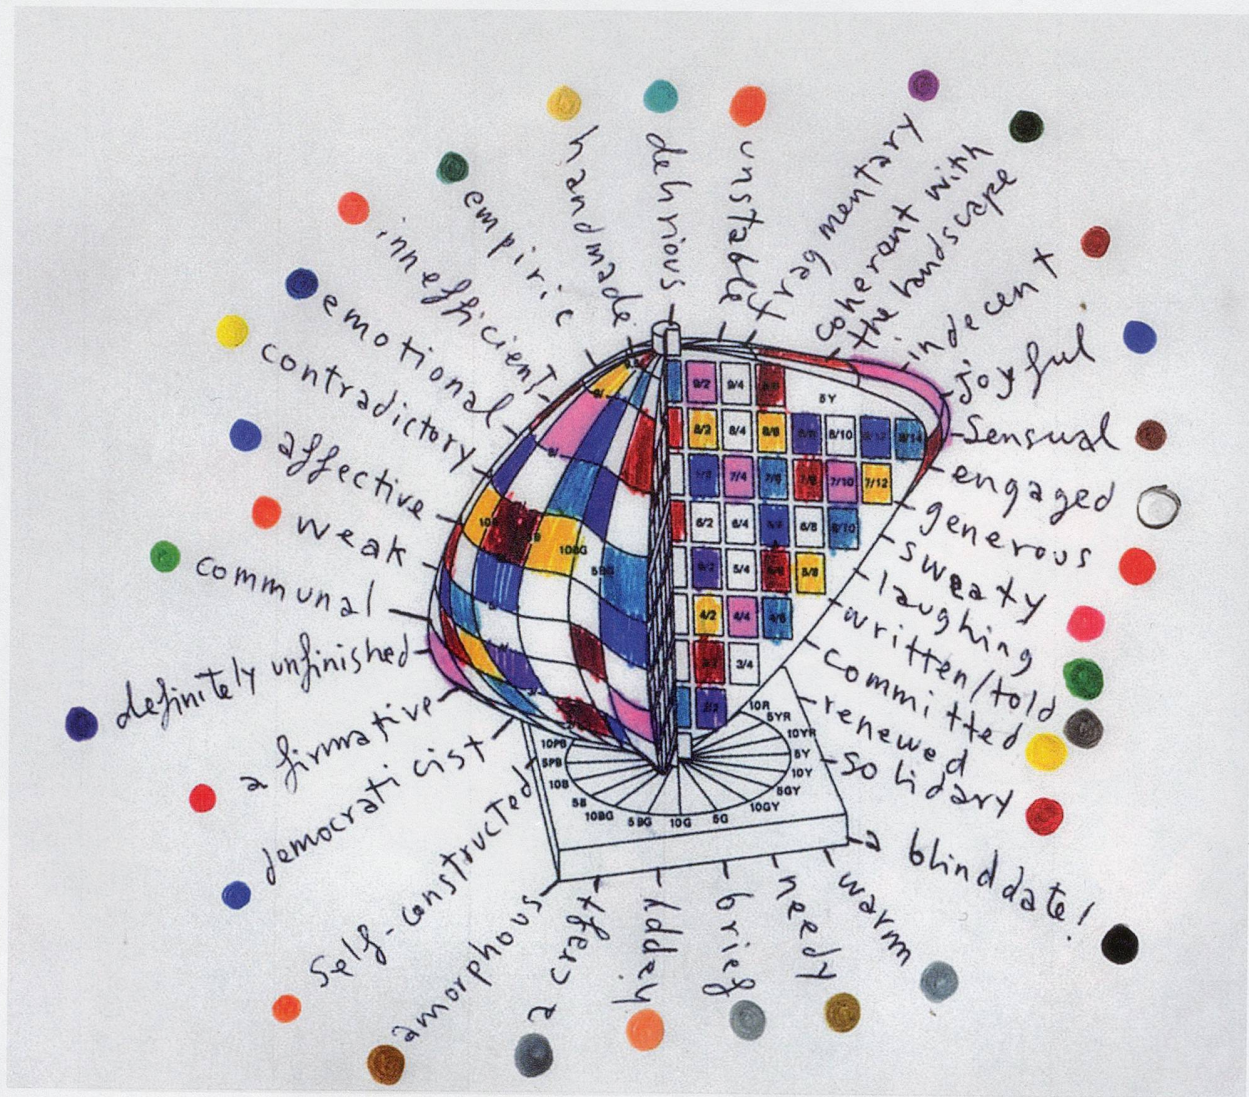 handmade
dehrious
unstable
fragmentary
coherent with
the landscape
indecent
joyful
sensual
engaged
generous
sweaty
laughing
written/told
committed
renewed
solidary
a blind date!
warm
needy
brief
happy
a craft
amorphous
self-constructed
democraticist
afirmative
definitely unfinished
communal
weak
affective
contradictory
emotional
inefficient
empiric
9/2 9/4
5Y
8/2 8/4 8/6 8/10 8/12 8/14
7/4 7/10 7/12
6/2 6/4 6/8 6/10
5/4 5/8
4/2 4/4 4/6
3/4
2/2
10BG
5BG
10R
5YR
10YR
5Y
10Y
5GY
10GY
5G
10G
5BG
10BG
5B
10B
5PB
10PB